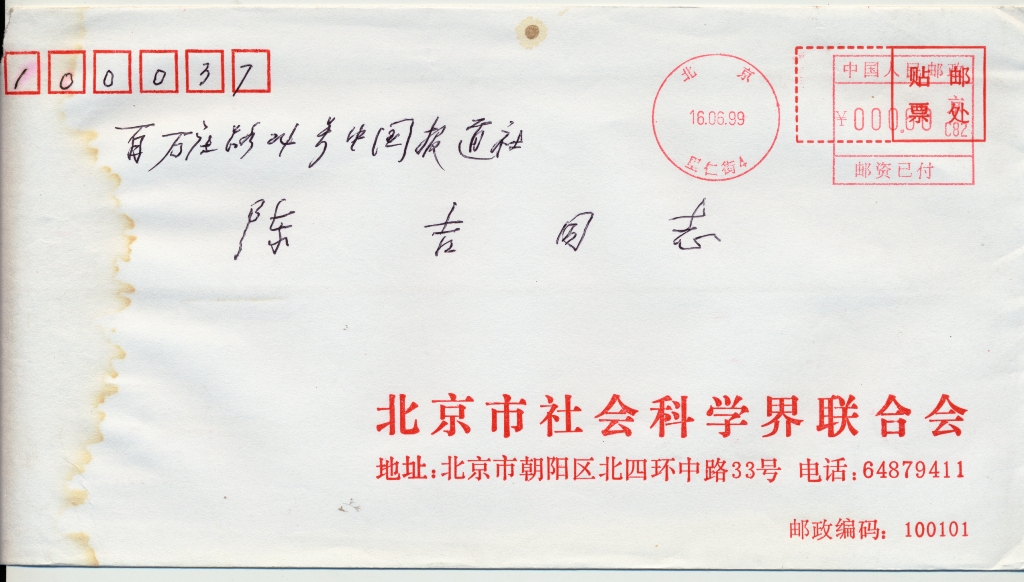 100037
北京
16.06.99
中国人民邮政
京
¥000.00 C82
邮资已付
贴邮
票处
百万庄路24号中国报道社
陈吉同志
北京市社会科学界联合会
地址:北京市朝阳区北四环中路33号 电话:64879411
邮政编码: 100101